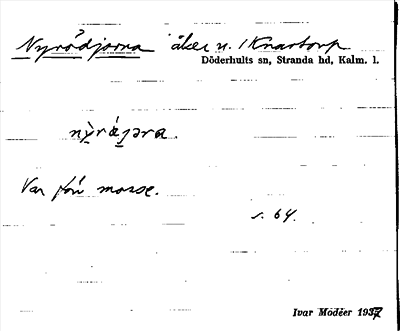 Nyrödjorna åker n. /Knartorp
Döderhults sn, Stranda hd, Kalm. l.
Var förr mosse.
s. 64.
Ivar Modéer 1937